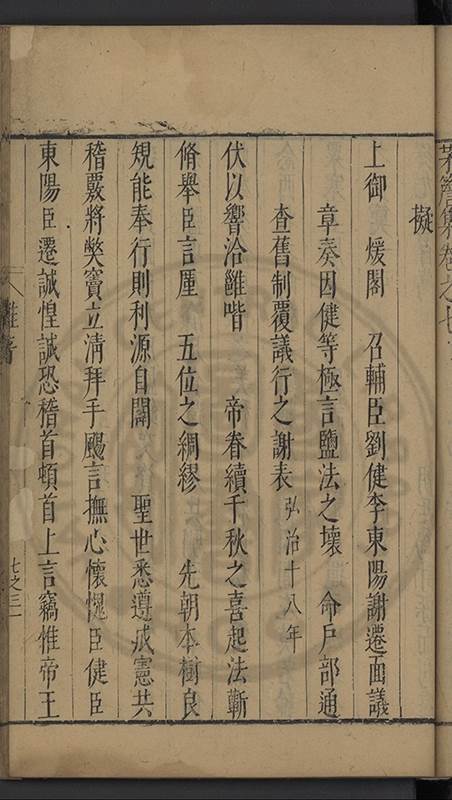 擬
上御煖閣 召輔臣劉健李東陽謝遷面議
章奏因健等極言鹽法之壞 命戶部通
查舊制覆議行之謝表 弘治十八年
伏以響洽雝喈 帝眷續千秋之喜起法蘄
脩舉臣言厪 五位之綢繆 先朝本樹良
規能奉行則利源自闢 聖世悉遵成憲共
稽覈將獘竇立淸拜手颺言撫心懷愧臣健臣
東陽臣遷誠惶誠恐稽首頓首上言竊惟帝王
雜著
七之三一